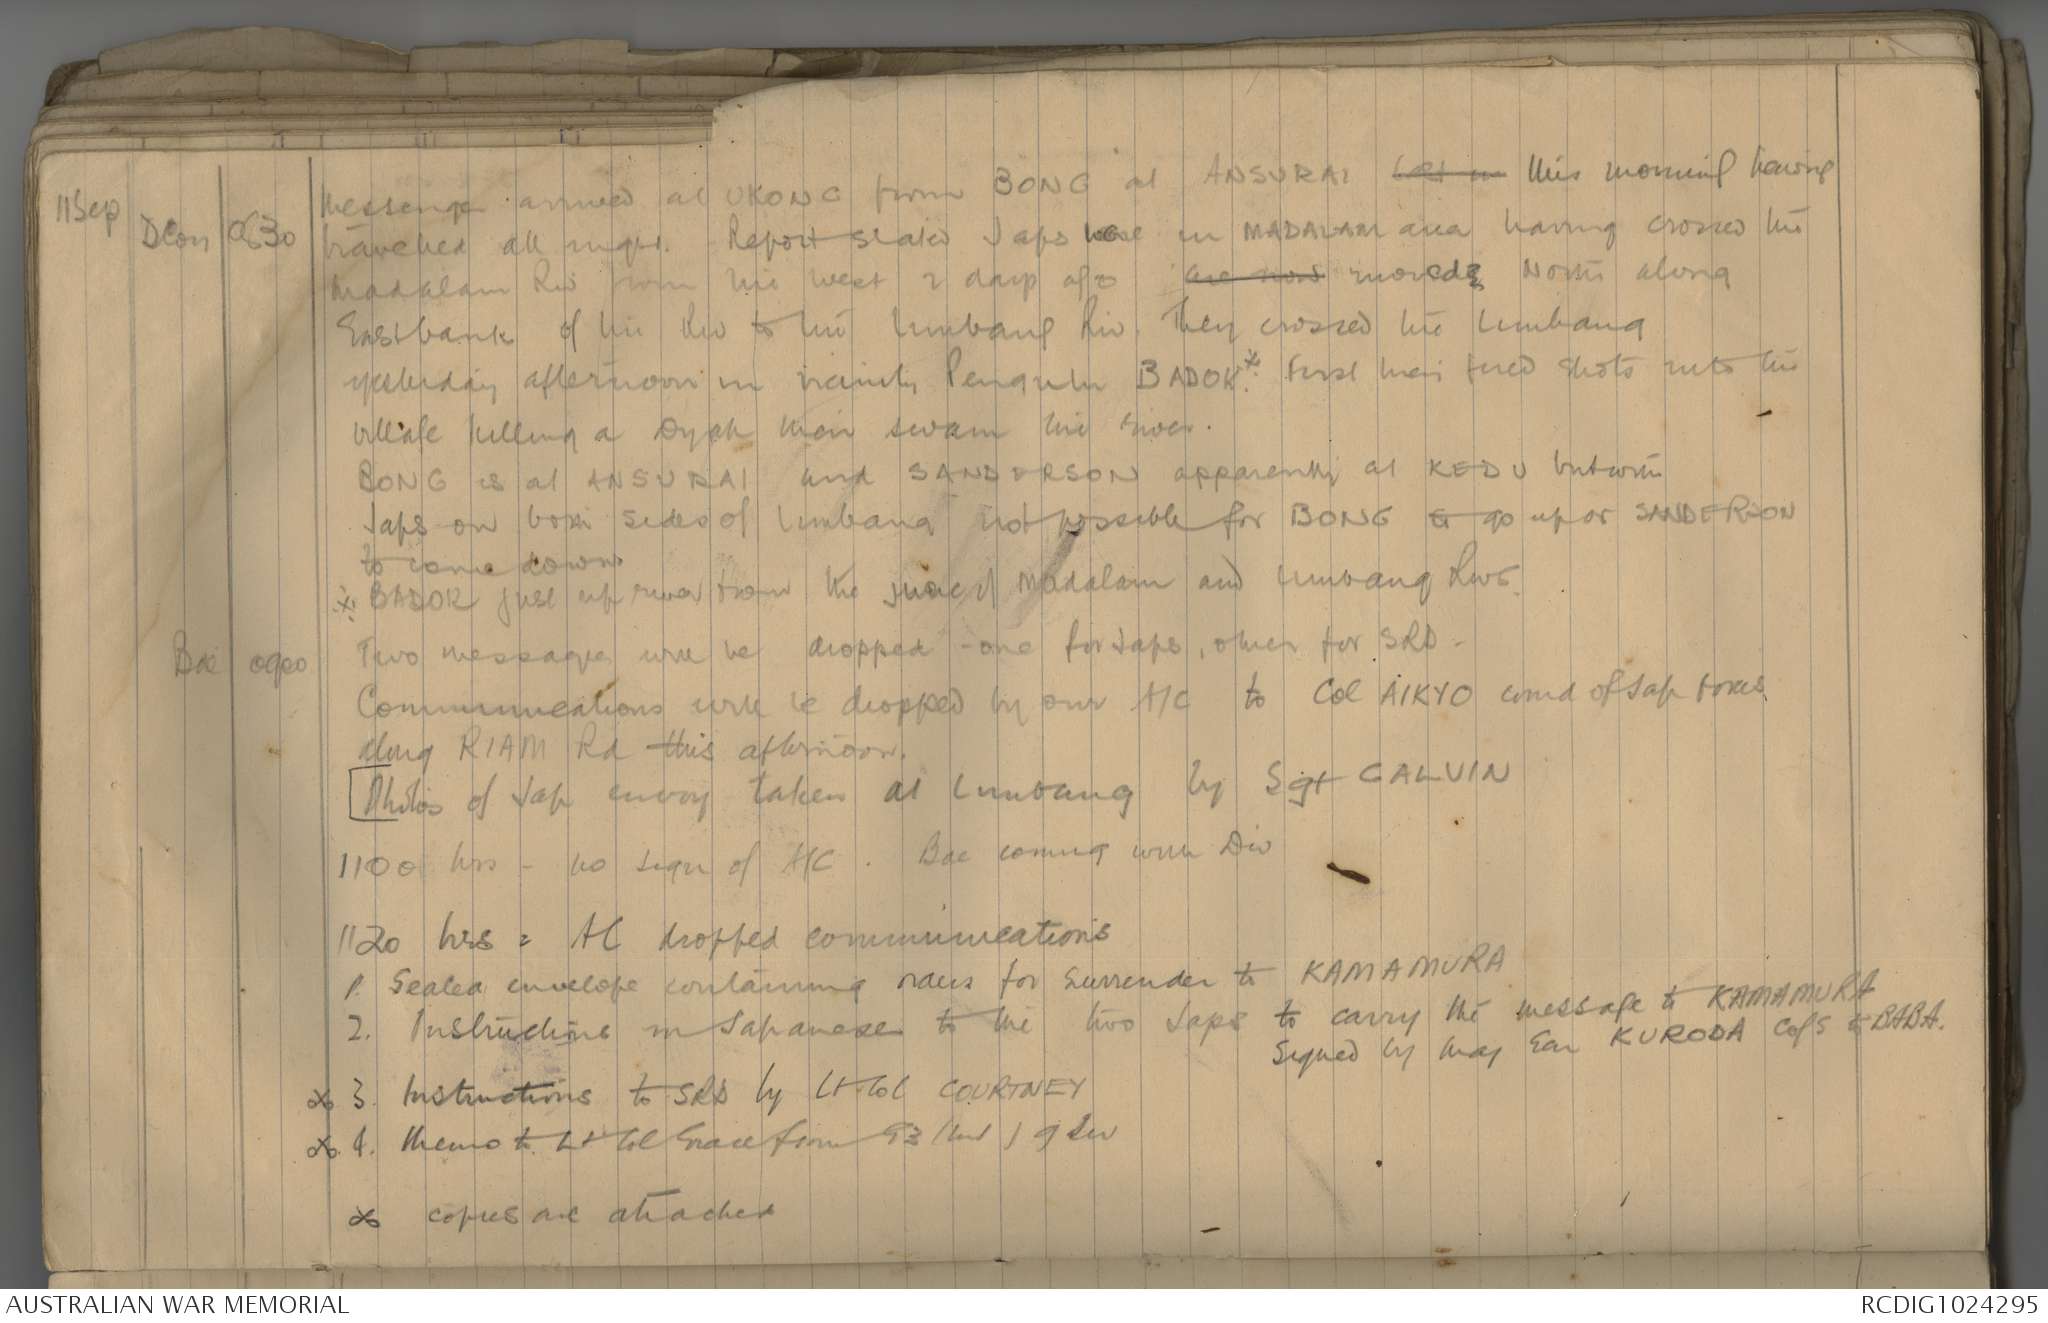 11 Sep
DCon 0630
Messenger arrived at UKONG from BONG at ANSURAI this morning having
travelled all night. Report stated Japs were in MADALAM area having crossed the
Madalam Riv from the west 2 days ago moved North along
East bank of the Riv to the Limbang Riv. They crossed the Limbang
yesterday afternoon in vicinity Pengulu BADOK. * First they fired shots into the
village killing a Dyak then swam the river.
BONG is at ANSURAI and SANDERSON apparently at KEDU but with
Japs on both sides of Limbang not possible for BONG to go up or SANDERSON
to come down
* BADOK just up river from the junc of Madalam and Limbang Rivs.
Bde 0900
Two messages will be dropped - one for Japs, other for SRD -
Communications will be dropped by our A/C to Col AIKYO comd of Jap forces
along RIAM Rd this afternoon.
Photos of Jap envoy taken at Limbang by Sgt GALVIN
1100 hrs - no sign of A/C. Bde coming with Div
1120 hrs = AC dropped communications
1. Sealed envelope containing orders for surrender to KAMAMURA
2. Instructions in Japanese to the two Japs to carry the message to KAMAMURA
Signed by Maj Gen KURODA CofS to BABA.
* 3. Instructions to SRD by Lt Col COURTNEY
* 4. Memo to Lt Col from G3 (Int) 9 Div
* copies are attached
AUSTRALIAN WAR MEMORIAL
RCDIG1024295